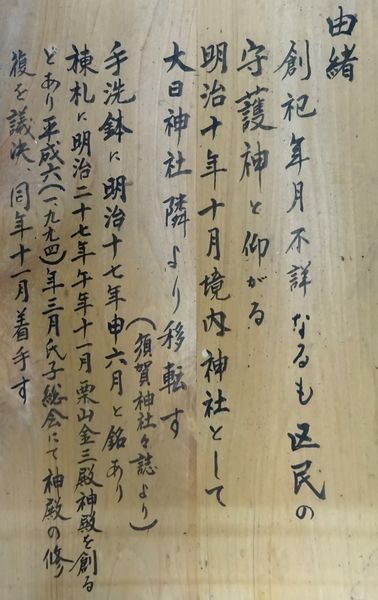 由緒
創祀年月不詳なるも区民の
守護神と仰がる
明治十年十月境内神社として
大日神社隣より移転す
(須賀神社々誌より)
手洗鉢に明治十七年申六月と銘あり
棟札に明治二十七年午年十一月栗山金三殿神殿を創る
とあり平成六(一九九四)年三月氏子総会にて神殿の修
復を議決、同年十一月着手す